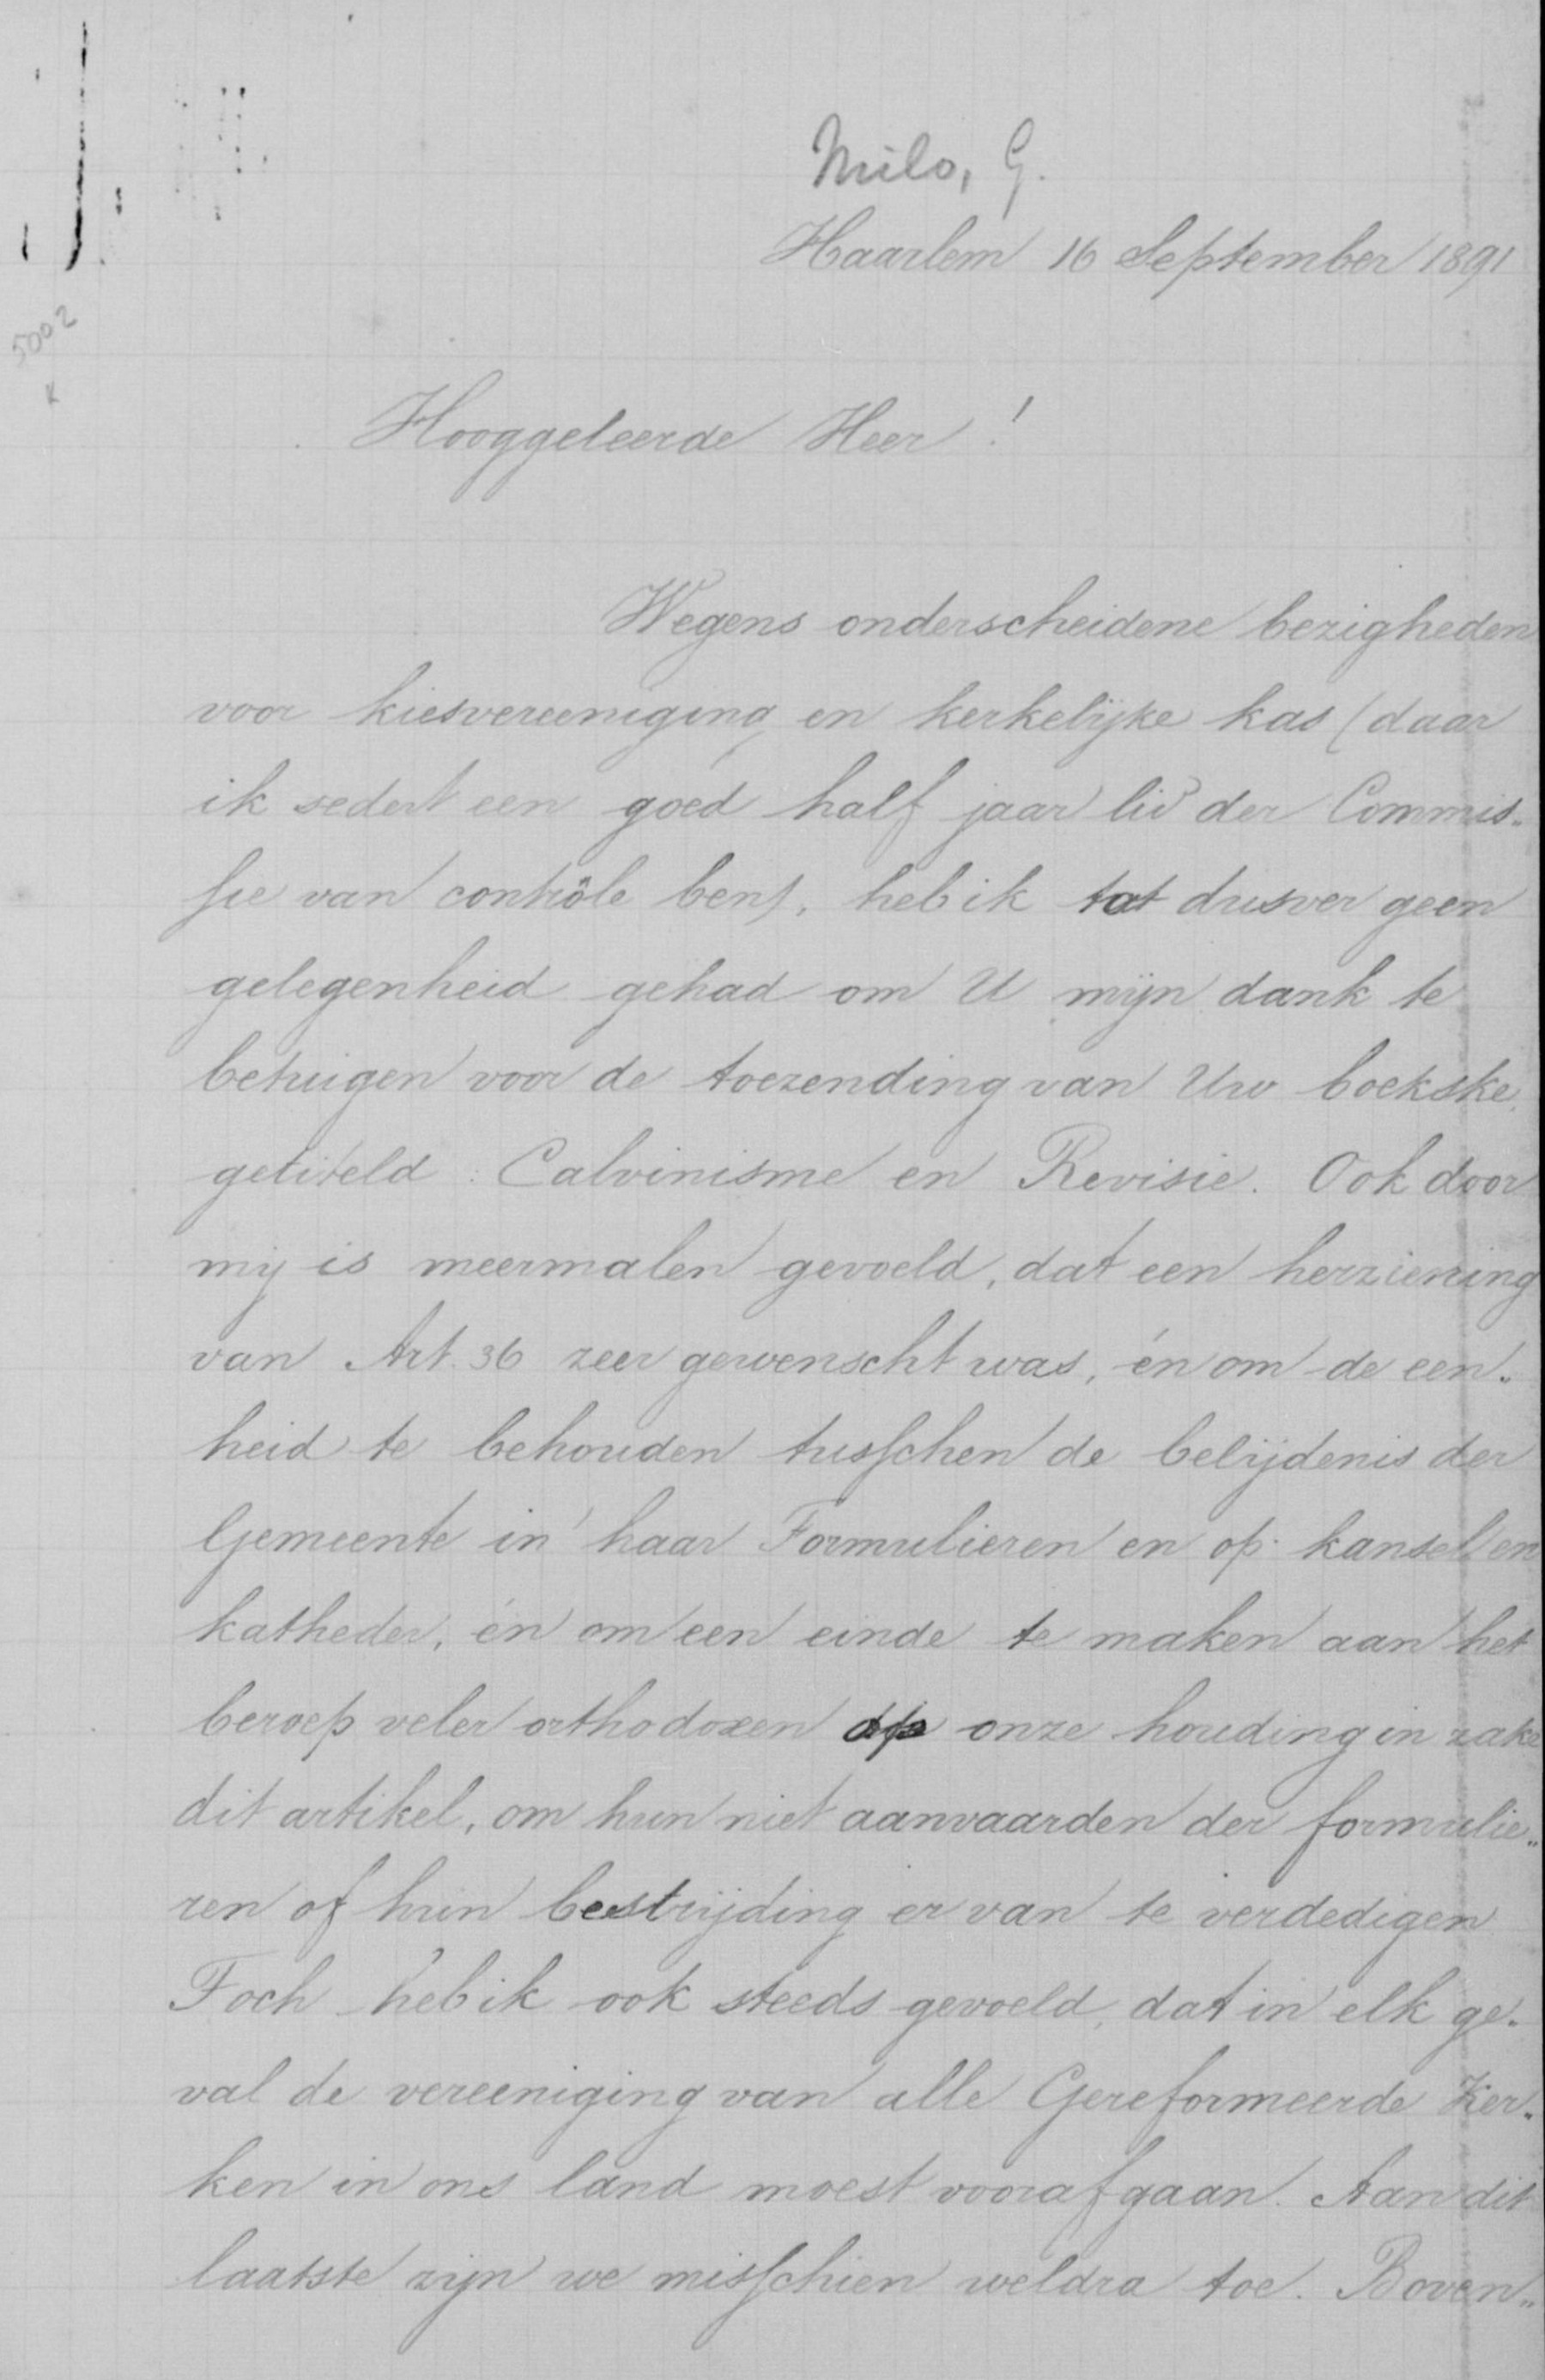 Milo, G.
Haarlem 16 September 1891
5002
K
Hooggeleerde Heer!
Wegens onderscheidene bezigheden
voor kiesvereeniging en kerkelijke kas (daar
ik sedert een goed half jaar lid der Commis-
sie van contrôle ben), heb ik tot dusver geen
gelegenheid gehad om U mijn dank te
betuigen voor de toezending van Uw boekske,
getiteld: Calvinisme en Revisie. Ook door
mij is meermalen gevoeld, dat een herziening
van Art. 36 zeer gewenscht was, én om de een-
heid te behouden tusschen de belijdenis der
Gemeente in haar Formulieren en op kansel en
katheder, én om een einde te maken aan het
beroep veler orthodoxen op onze houding in zake
dit artikel, om hun niet aanvaarden der formulie-
ren of hun bestrijding er van te verdedigen
Toch heb ik ook steeds gevoeld, dat in elk ge-
val de vereeniging van alle Gereformeerde Ker-
ken in ons land moest voorafgaan. Aan dit
laatste zijn we misschien weldra toe. Boven-